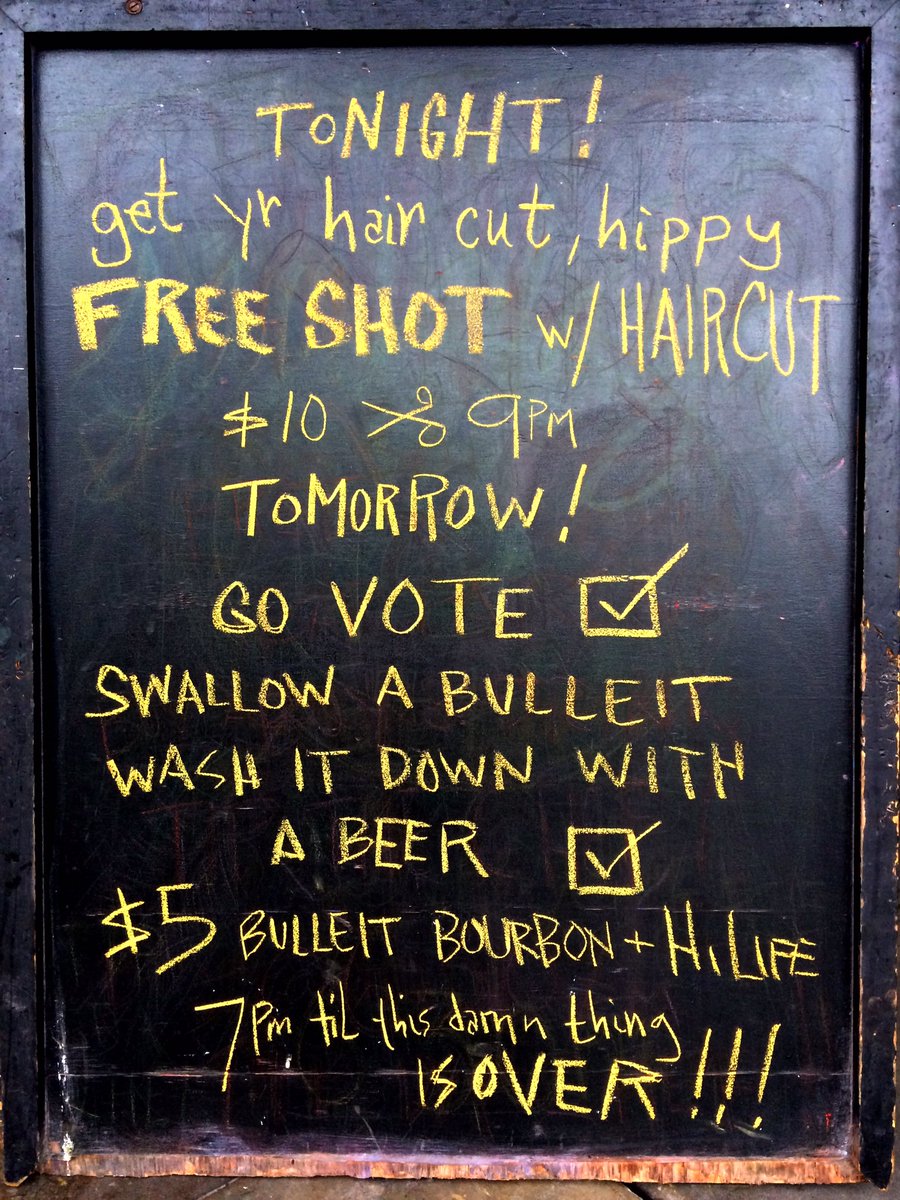 TONIGHT!
get yr hair cut, hippy
FREE SHOT w/ HAIRCUT
$10 9PM
TOMORROW!
GO VOTE
SWALLOW A BULLEIT
WASH IT DOWN WITH
A BEER
$5 BULLEIT BOURBON + HI LIFE
7pm til this damn thing
is OVER!!!